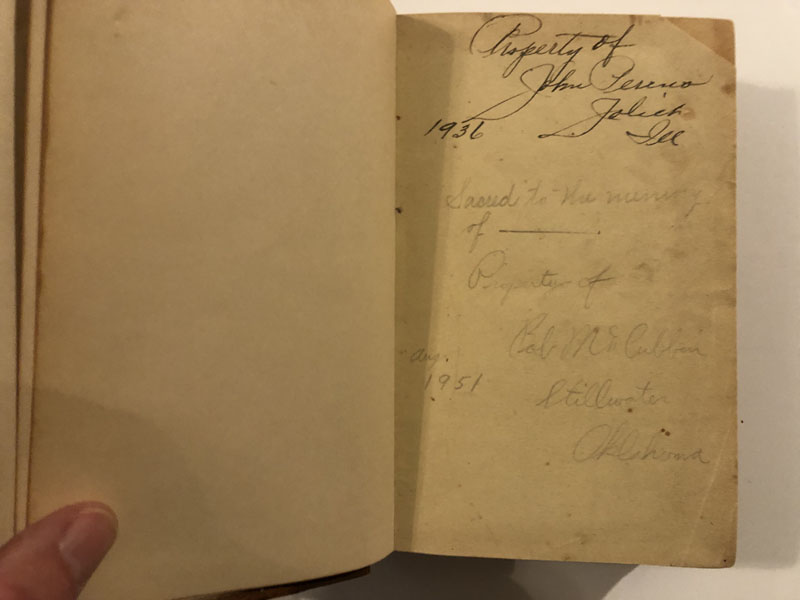 Property of
John Pereno
Joliet
1936 Ill
Sacred to the memory
of
Property of
Bob McCubbin
Aug.
1951
Stillwater
Oklahoma